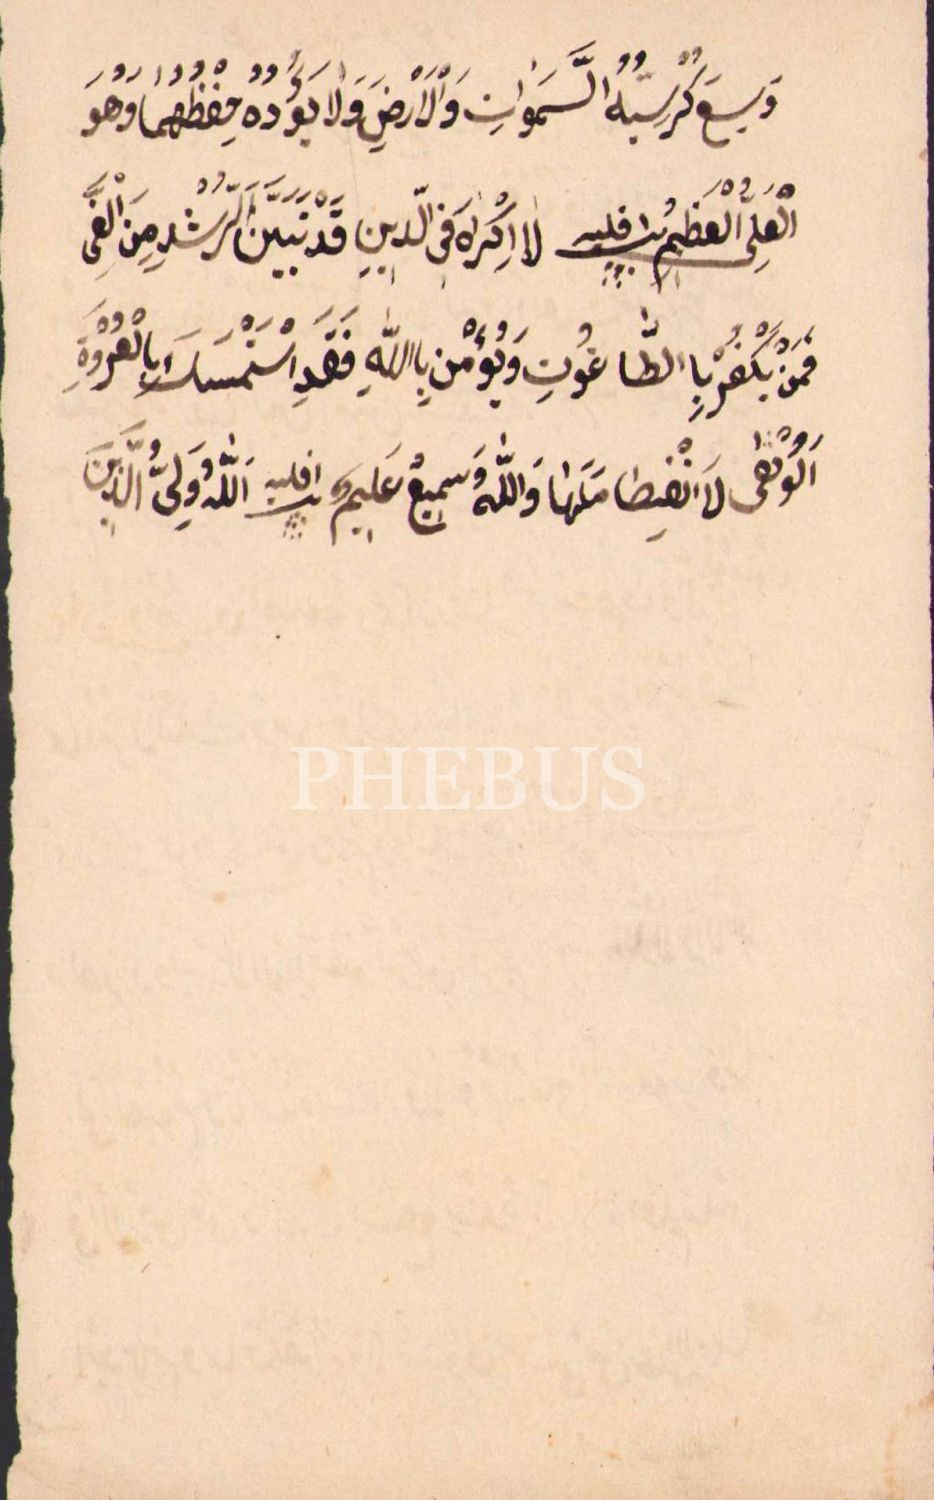 وَسِعَ كُرْسِيُّهُ السَّمَوَاتِ وَالْاَرْضَ وَلَا يَؤُدُهُ حِفْظُهُمَا وَهُوَ
الْعَلِىُّ الْعَظِيمُ لَا اِكْرَاهَ فِى الدِّينِ قَدْ تَبَيَّنَ الرُّشْدُ مِنَ الْغَىِّ
فَمَنْ يَكْفُرْ بِا الطَّاغُوتِ وَيُؤْمِنْ بِاللّٰهِ فَقَدِ اسْتَمْسَكَ بِالْعُرْوَةِ
الْوُثْقٰى لَا انْفِصَامَ لَهَا وَاللّٰهُ سَمِيعٌ عَلِيمٌ اَللّٰهُ وَلِىُّ الَّذِينَ
PHEBUS